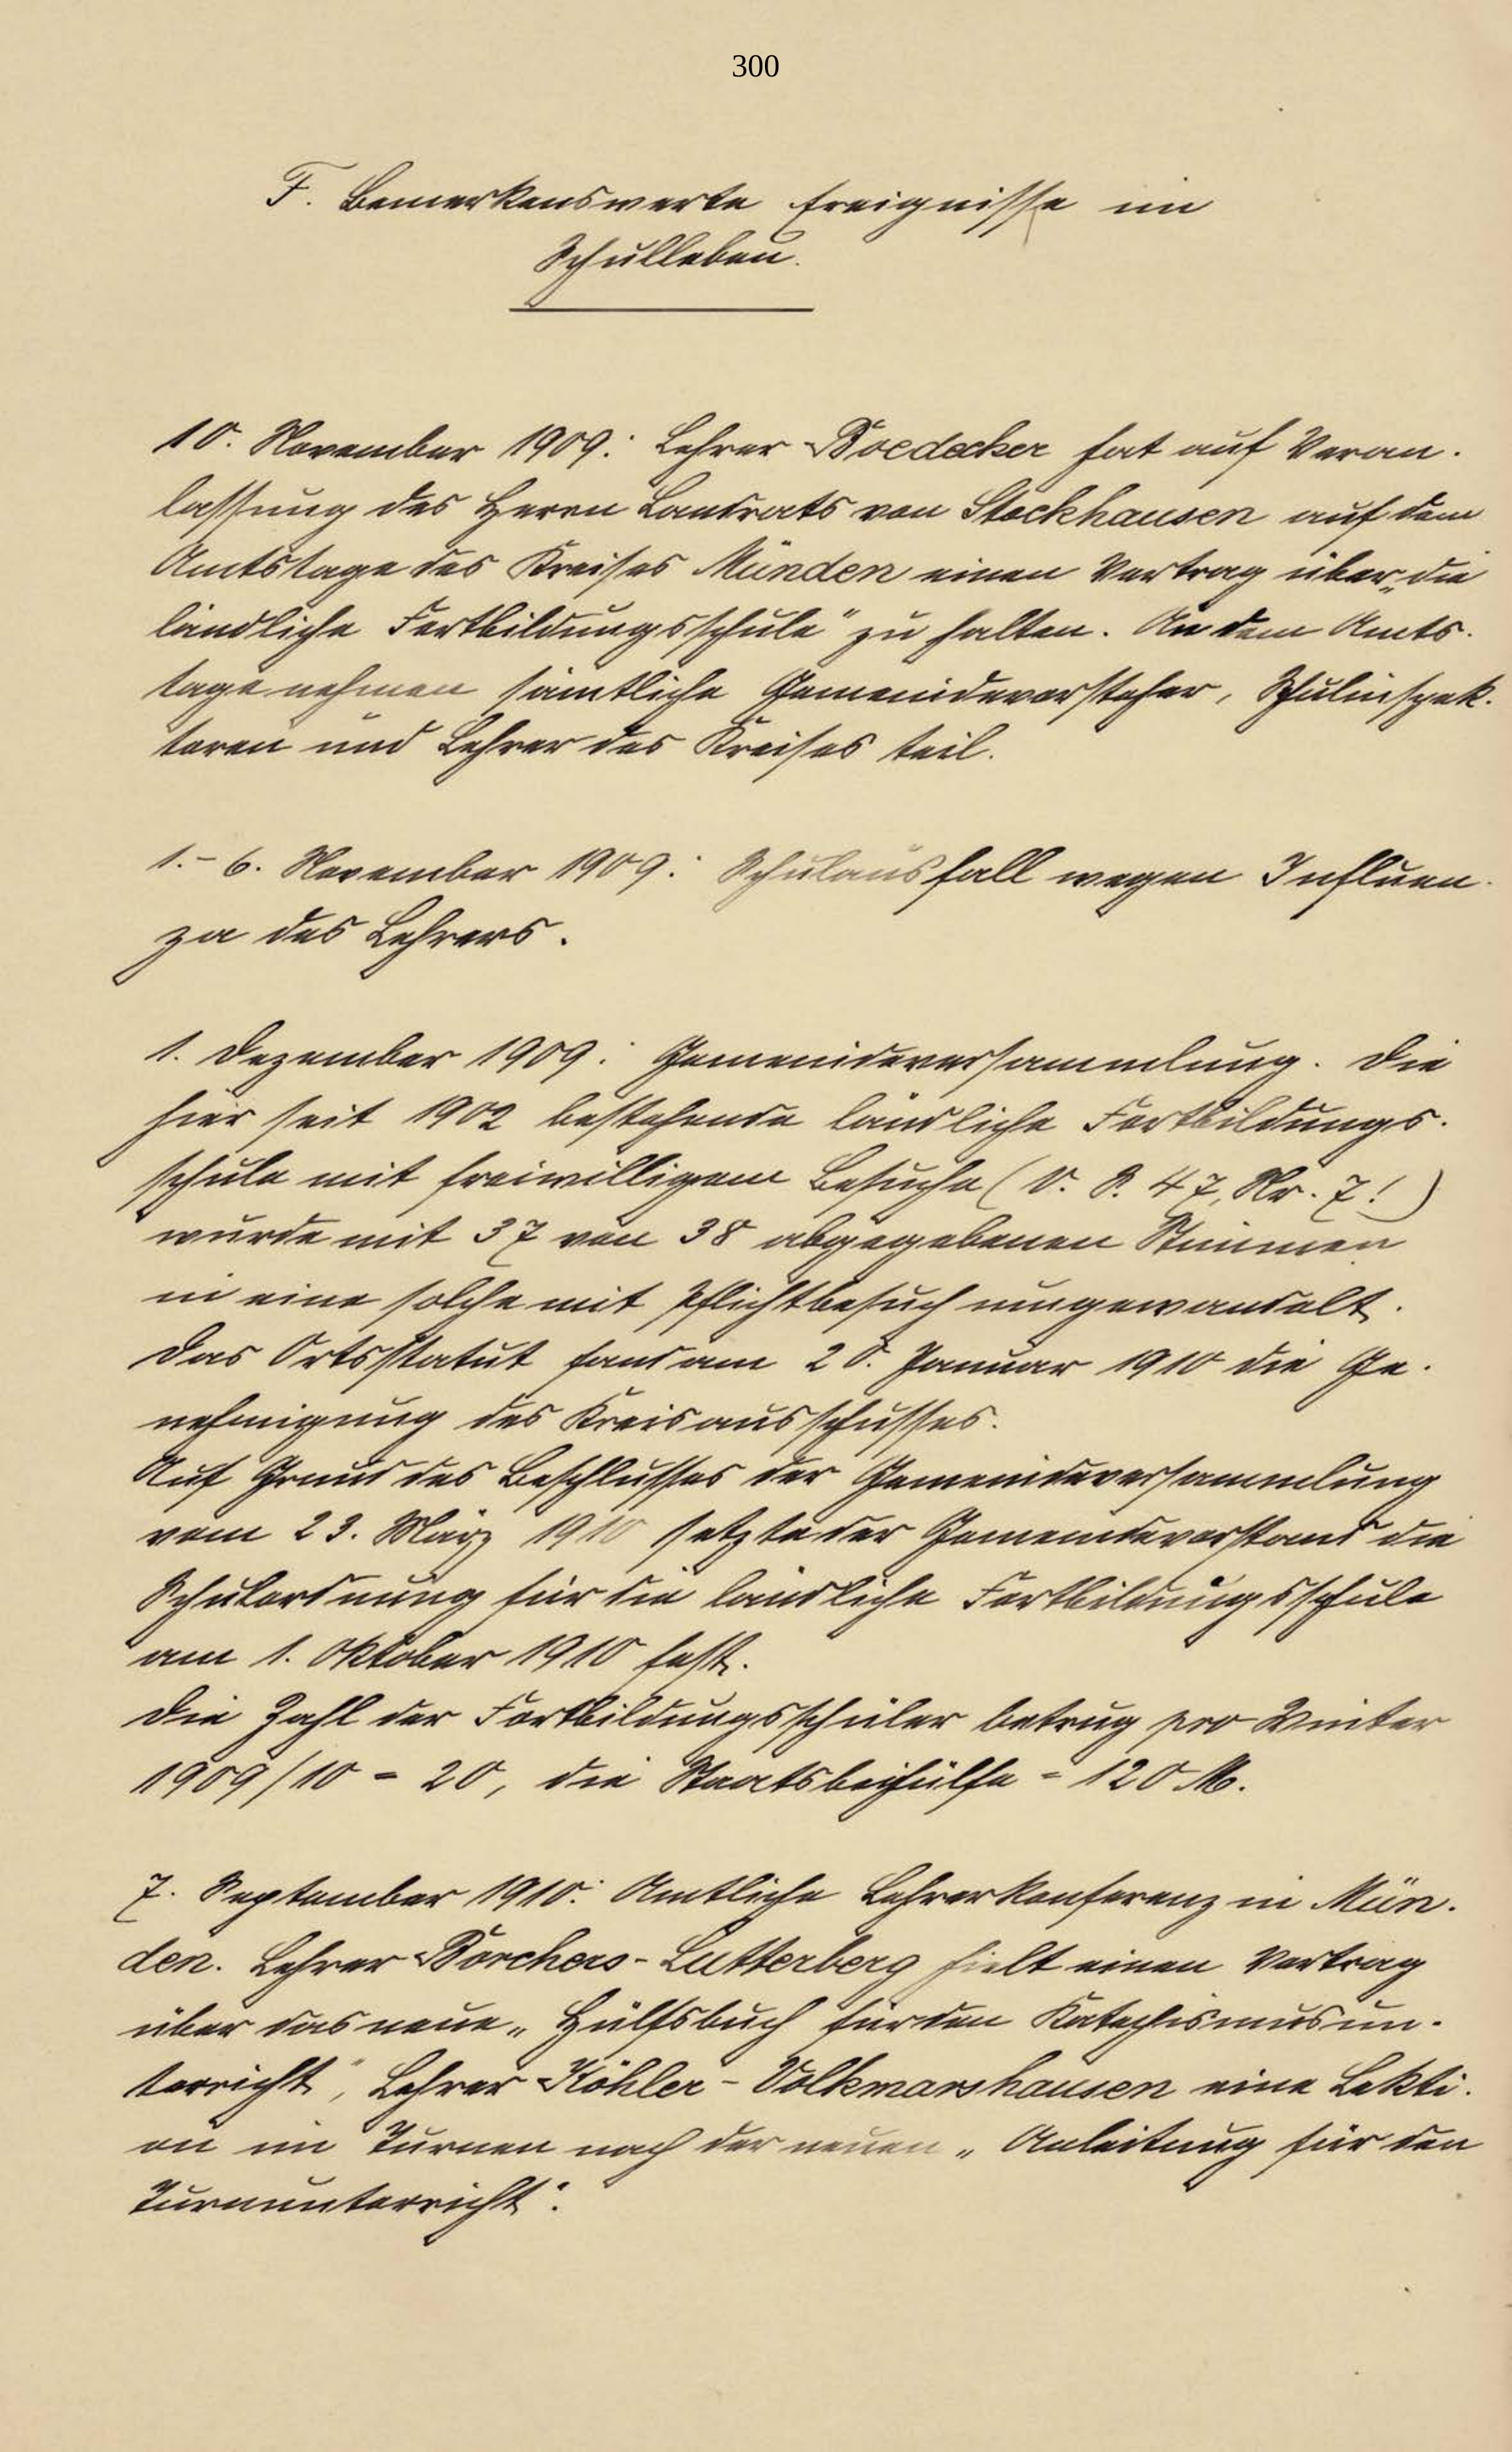 300
F. Bemerkenswerte Ereignisse im
Schulleben.
10. November 1909: Lehrer Boedecker hat auf Veran-
lassung des Herrn Landrats von Stockhausen auf dem
Amtstage des Kreises Münden einen Vortrag über „die
ländliche Fortbildungsschule" zu halten. An dem Amts-
tage nehmen sämtliche Gemeindevorsteher, Schulinspek-
toren und Lehrer des Kreises teil.
1.- 6. November 1909: Schulausfall wegen Influen-
za des Lehrers.
1. Dezember 1909: Gemeindeversammlung. Die
hier seit 1902 bestehende ländliche Fortbildungs-
schule mit freiwilligem Besuche (v. S. 47, Nr. 7!)
wurde mit 37 von 38 abgegebenen Stimmen
in eine solche mit Pflichtbesuch umgewandelt.
Das Ortsstatut fand am 20. Januar 1910 die Ge-
nehmigung des Kreisausschusses.
Auf Grund des Beschlusses der Gemeindeversammlung
vom 23. März 1910 setzte der Gemeindevorstand die
Schulordnung für die ländliche Fortbildungsschule
am 1. Oktober 1910 fest.
Die Zahl der Fortbildungsschüler betrug pro Winter
1909/10 = 20, die Staatsbeihülfe = 120 M.
7. September 1910: Amtliche Lehrerkonferenz in Mün-
den. Lehrer Borchers-Lutterberg hielt einen Vortrag
über das neue „Hülfsbuch für den Katechismusun-
terricht", Lehrer Köhler-Volkmarshausen eine Lekti-
on im Turnen nach der neuen „Anleitung für den
Turnunterricht".